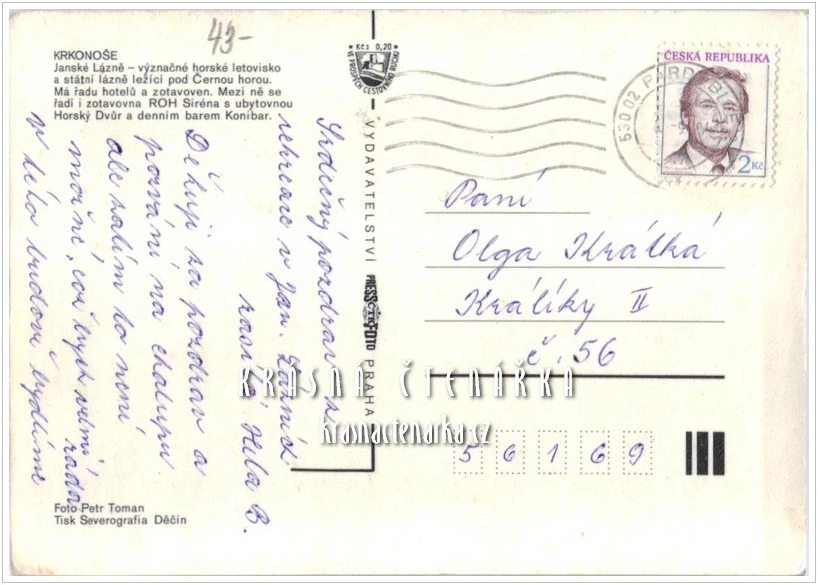 43-
KRKONOŠE
Janské Lázně – význačné horské letovisko
a státní lázně ležící pod Černou horou.
Má řadu hotelů a zotavoven. Mezi ně se
řadí i zotavovna ROH Siréna s ubytovnou
Horský Dvůr a denním barem Koníbar.
Kčs 0,20
VE PROSPĚCH CESTOVNÍHO RUCHU
530 02 PARDUBICE
ČESKÁ REPUBLIKA
2 Kč
VYDAVATELSTVÍ PRESSFOTO PRAHA
Srdečný pozdrav z
rekreace v Jan. Lázních
zasílá Hela B.
Děkuji za pozdrav a
pozvání na chalupu
ale zatím to není
možné, což bych velmi ráda
v této budově bydlíme
Paní
Olga Krátká
Králíky II
č. 56
56169
KRÁSNÁ ČTENÁŘKA
krasnactenarka.cz
Foto Petr Toman
Tisk Severografia Děčín